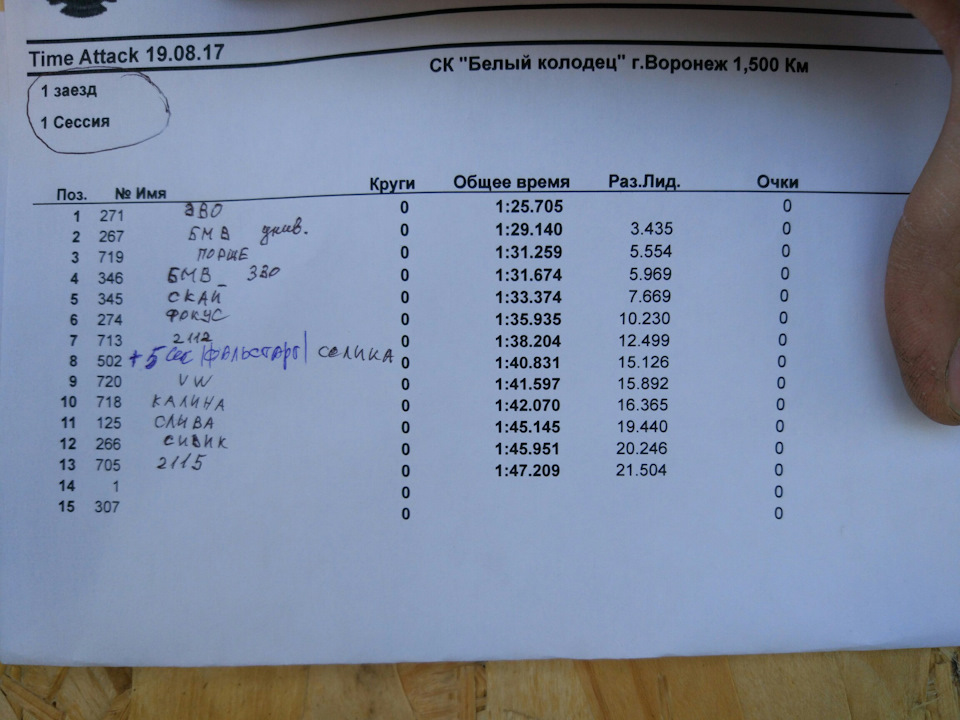 Time Attack 19.08.17
СК "Белый колодец" г.Воронеж 1,500 Км
1 заезд
1 Сессия
Поз. № Имя Круги Общее время Раз.Лид. Очки
1 271 ЭВО 0 1:25.705 0
2 267 БМВ унив. 0 1:29.140 3.435 0
3 719 ПОРШЕ 0 1:31.259 5.554 0
4 346 БМВ_ ЭВО 0 1:31.674 5.969 0
5 345 СКАЙ 0 1:33.374 7.669 0
6 274 ФОКУС 0 1:35.935 10.230 0
7 713 2112 0 1:38.204 12.499 0
8 502 +5 сек |ФАЛЬСТАРТ| СЕЛИКА 0 1:40.831 15.126 0
9 720 VW 0 1:41.597 15.892 0
10 718 КАЛИНА 0 1:42.070 16.365 0
11 125 СЛИВА 0 1:45.145 19.440 0
12 266 СИВИК 0 1:45.951 20.246 0
13 705 2115 0 1:47.209 21.504 0
14 1 0 0
15 307 0 0